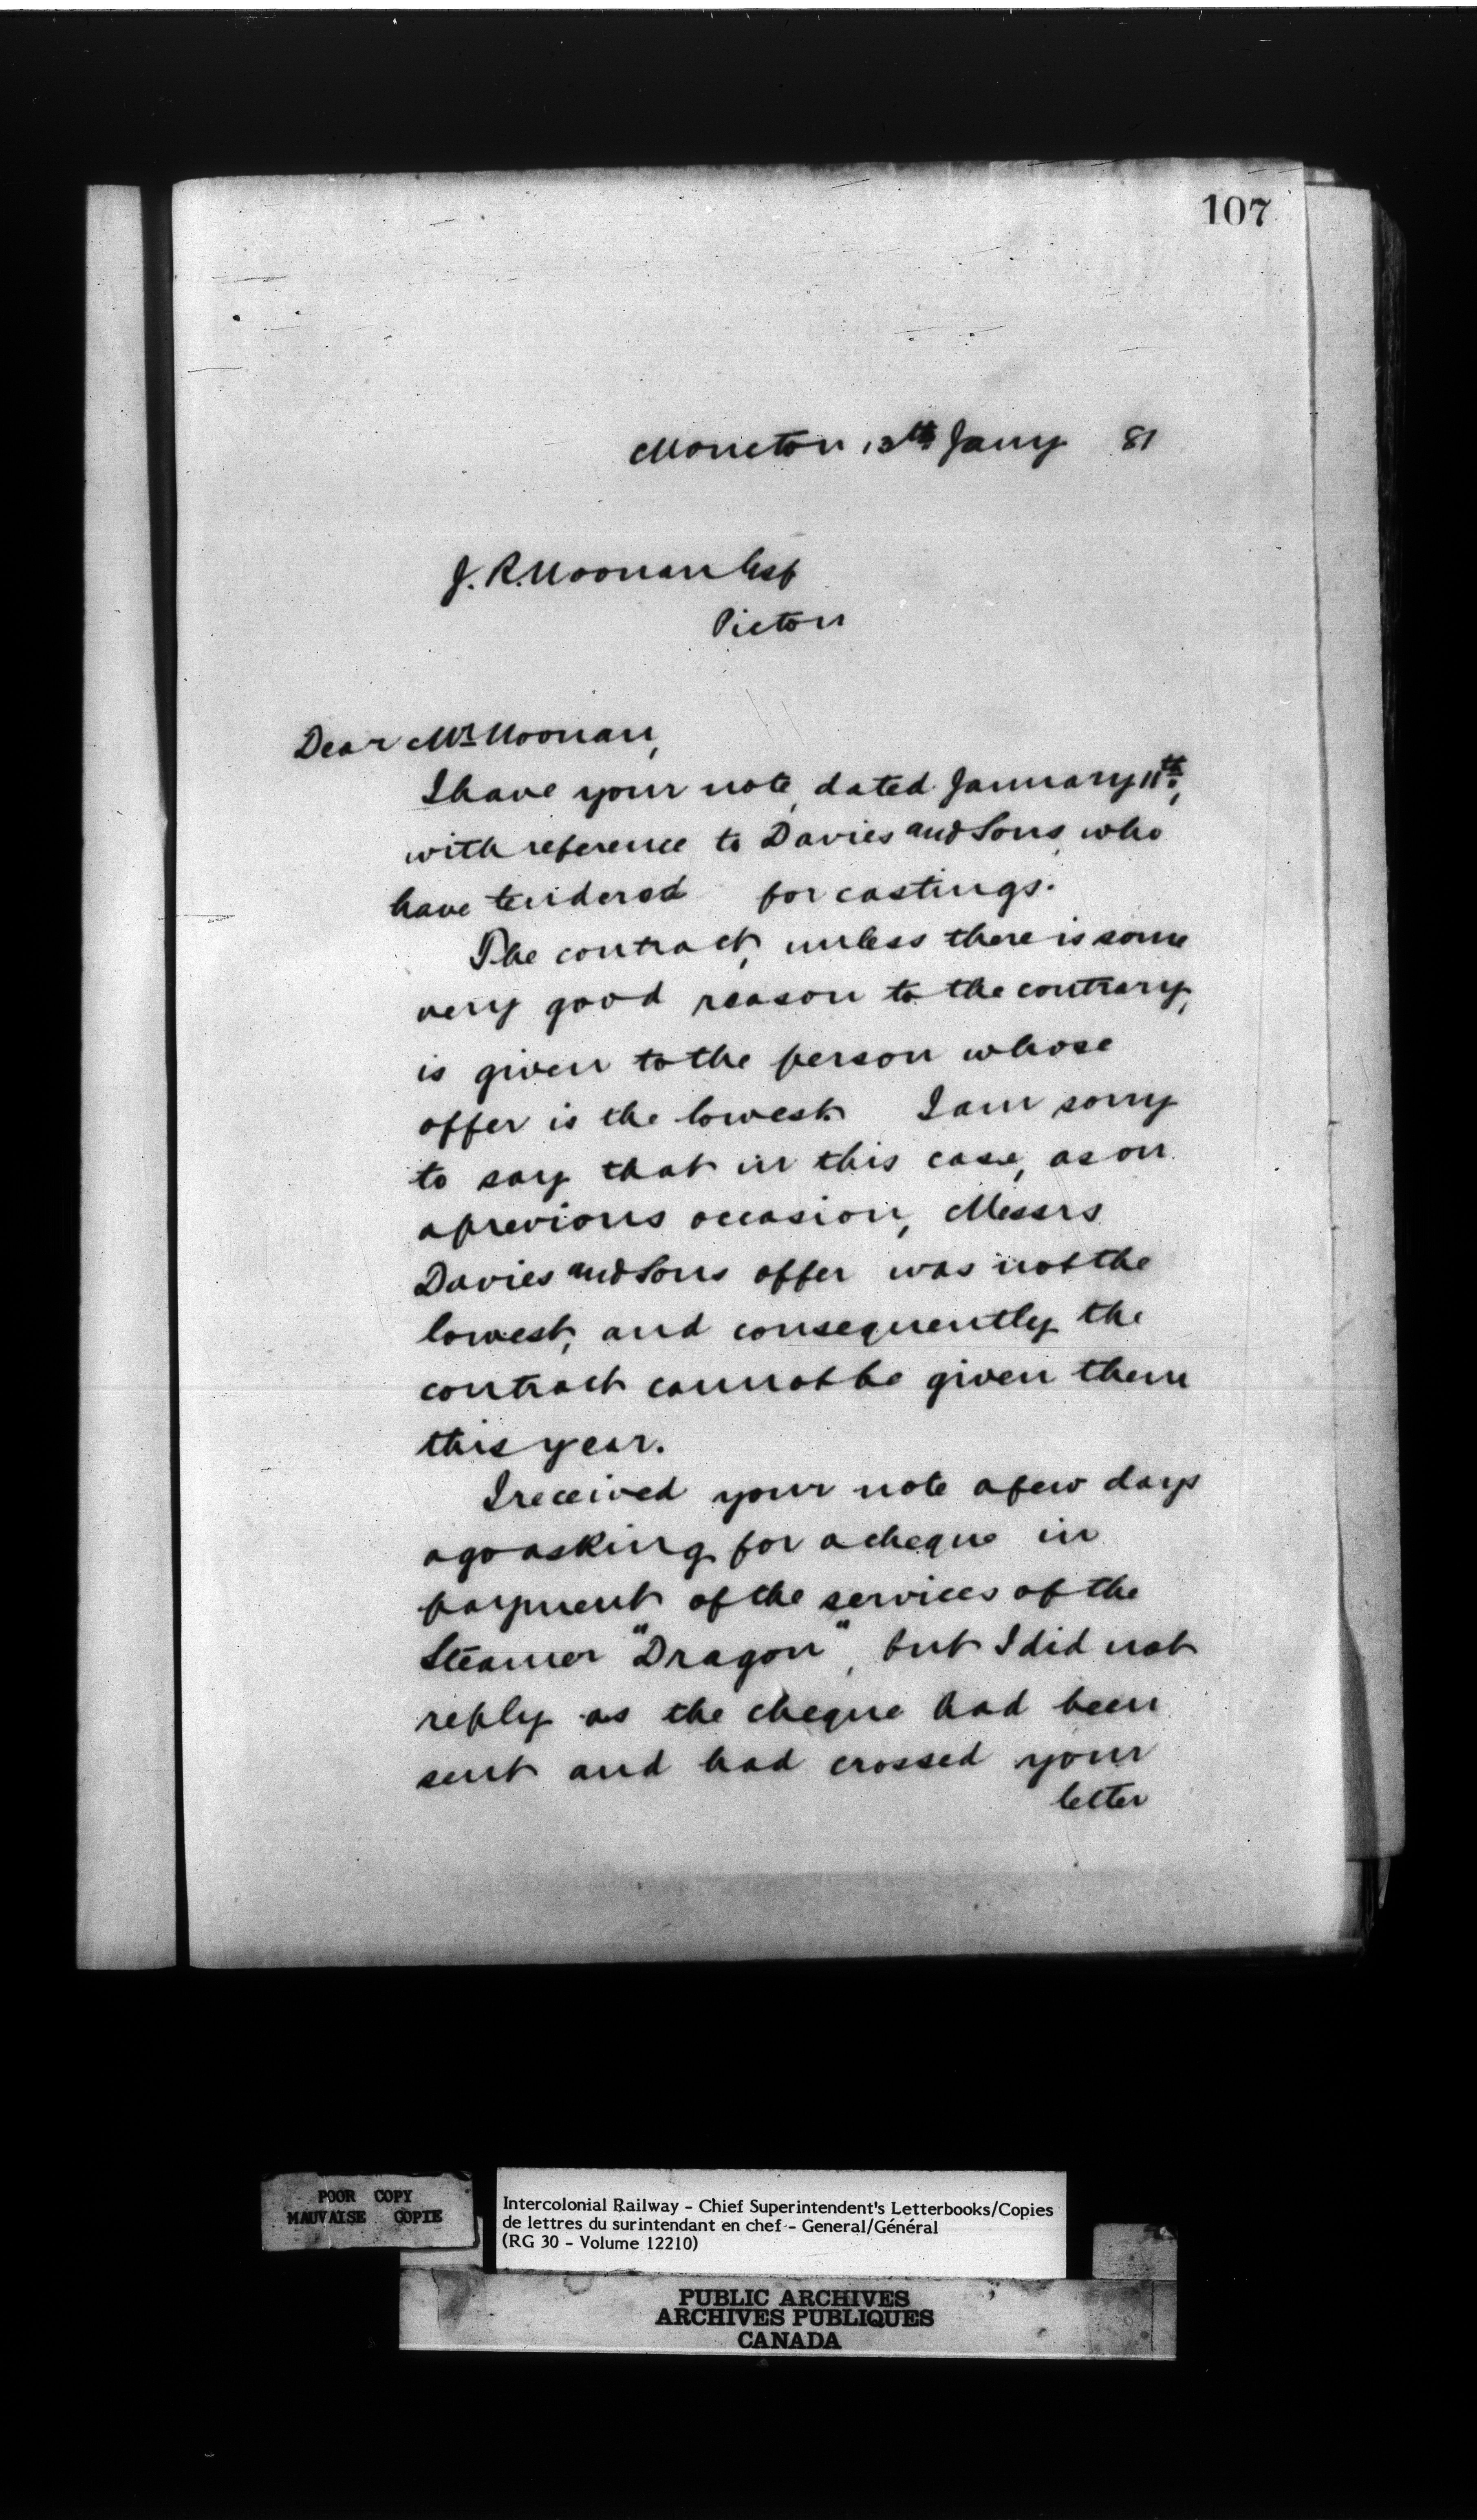 107
Moncton 13th Jany 81
J. R. Noonan Esq
Pictou
Dear Mr Noonan,
I have your note, dated January 11th,
with reference to Davies and Sons, who
have tendered for castings.
The contract, unless there is some
very good reason to the contrary,
is given to the person whose
offer is the lowest. I am sorry
to say that in this case, as on
a previous occasion, Messrs
Davies and Sons offer was not the
lowest, and consequently the
contract cannot be given them
this year.
I received your note a few days
ago asking for a cheque in
payment of the services of the
Steamer "Dragon", but I did not
reply as the cheque had been
sent and had crossed your
letter
POOR COPY
MAUVAISE COPIE
Intercolonial Railway - Chief Superintendent's Letterbooks/Copies
de lettres du surintendant en chef - General/Général
(RG 30 - Volume 12210)
PUBLIC ARCHIVES
ARCHIVES PUBLIQUES
CANADA